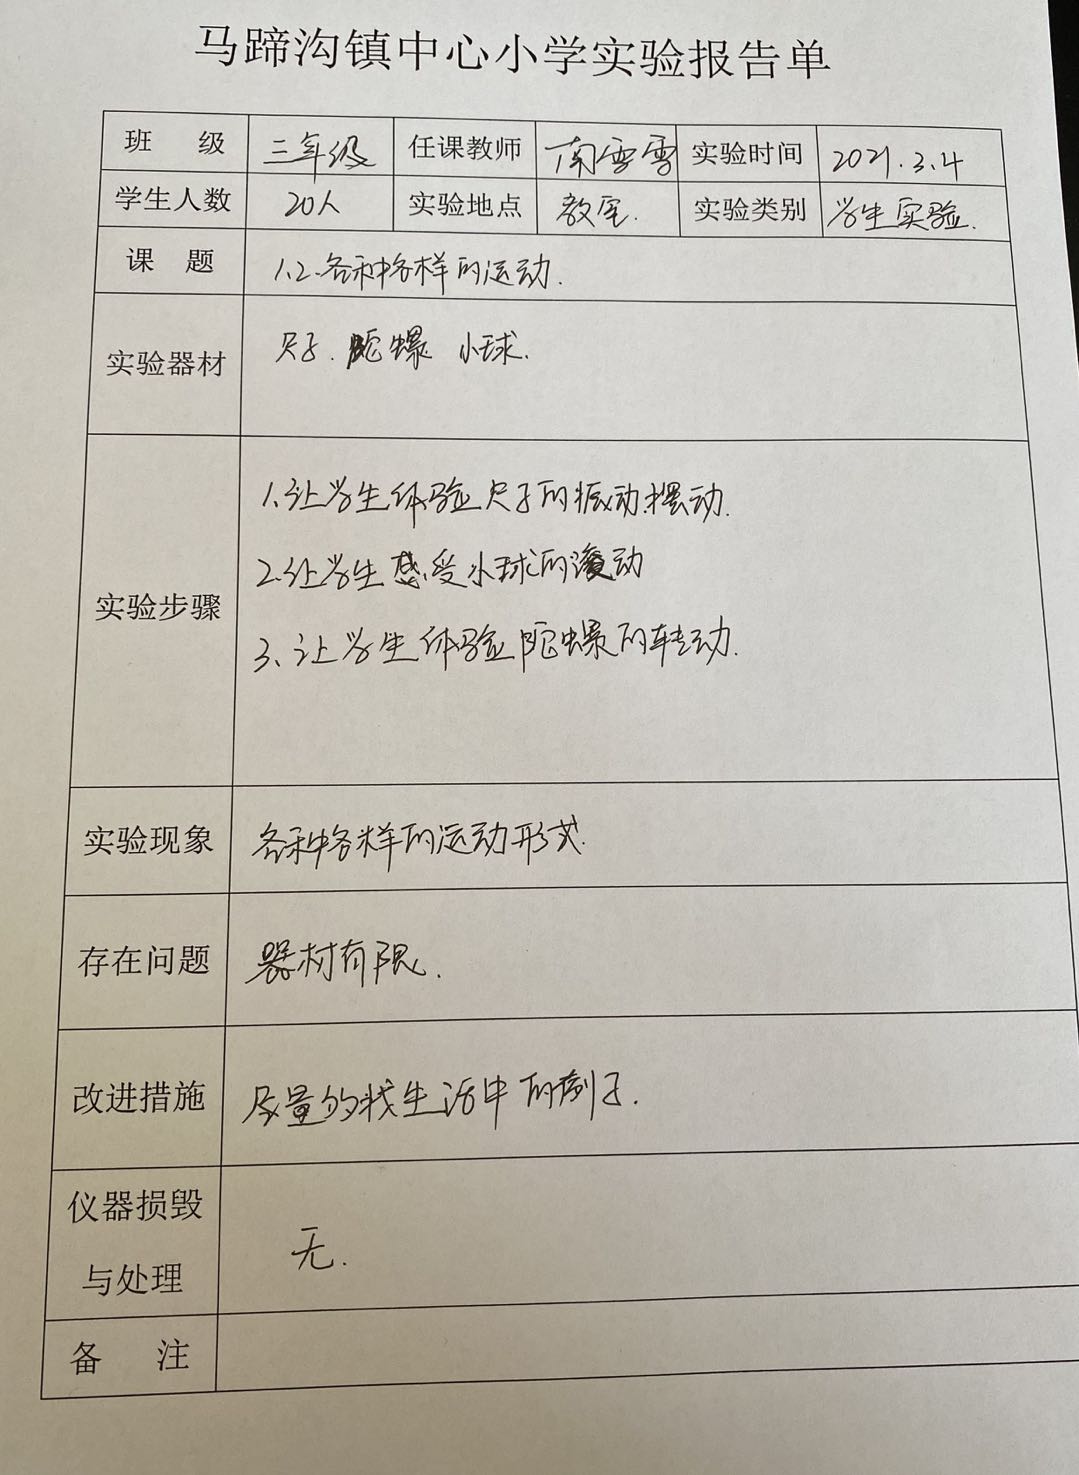 马蹄沟镇中心小学实验报告单
班 级 三年级 任课教师 南雪雪 实验时间 2021.3.4
学生人数 20人 实验地点 教室. 实验类别 学生实验.
课 题 1.2.各种各样的运动.
实验器材 尺子.陀螺 小球.
实验步骤
1.让学生体验尺子的振动.摆动.
2.让学生感受小球的滚动
3、让学生体验陀螺的转动.
实验现象 各种各样的运动形式.
存在问题 器材有限.
改进措施 尽量的找生活中的例子.
仪器损毁
与处理
无.
备 注